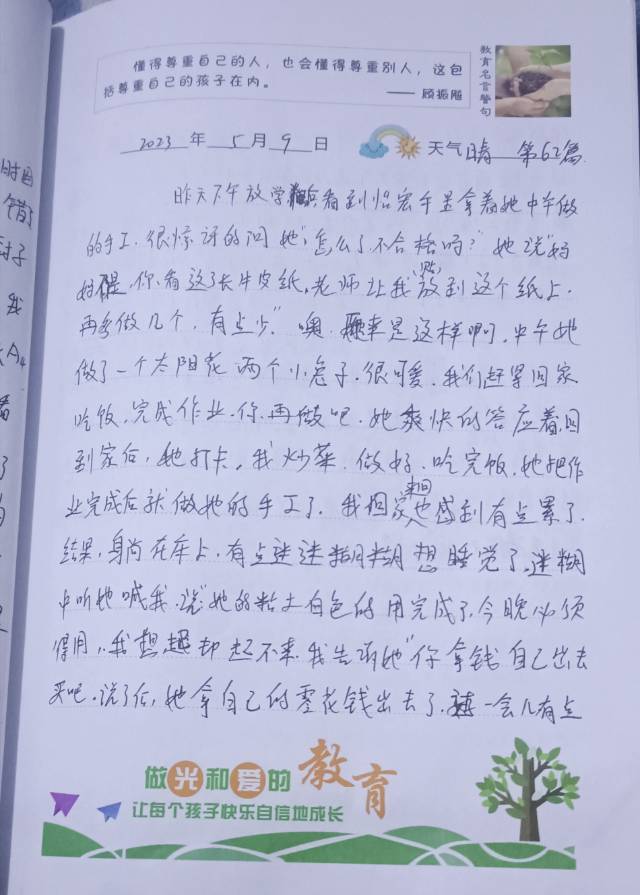 懂得尊重自己的人，也会懂得尊重别人，这包
括尊重自己的孩子在内。
——顾振飚
教育名言警句
2023 年 5 月 9 日 天气 晴 第62篇
昨天下午放学看到怡宏手里拿着她中午做
的手工，很惊讶的问她“怎么了不合格吗？”她说“妈
妈，你看这张牛皮纸，老师让我放到这个纸上．
再多做几个，有点少”噢，原来是这样啊．中午她
做了一个太阳花 两个小兔子．很可爱．我们赶紧回家
吃饭，完成作业．你再做吧．她爽快的答应着回
到家后，她打卡，我炒菜．做好．吃完饭．她把作
业完成后就做她的手工了．我回家来回也感到有点累了．
结果，身尚在床上，有点迷迷糊糊想睡觉了．迷糊
中听她喊我．说她的粘土白色的用完成了．今晚必须
得用，我想起却起不来．我告诉她“你拿钱自己出去
买吧．说了后，她拿自己的零花钱出去了．一会儿有点
做光和爱的教育
让每个孩子快乐自信地成长